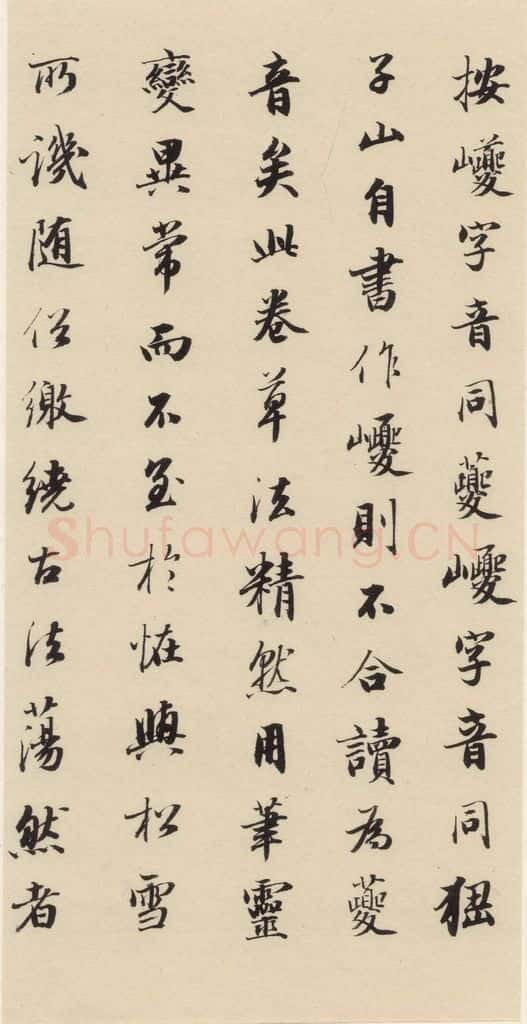 按巙字音同夔巎字音同
子山自書作巎則不合讀為夔
音矣此卷草法精熟用筆靈
變異常而不至於怪與松雪
所譏随俗繳繞古法蕩然者
Shufawang.CN